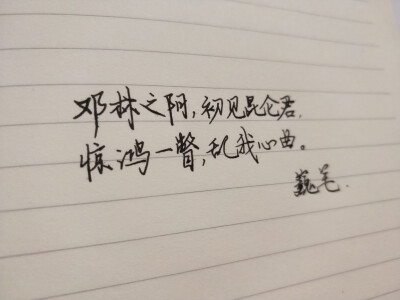 邓林之阿,初见昆仑君,
惊鸿一瞥,乱我心曲。
巍笔.